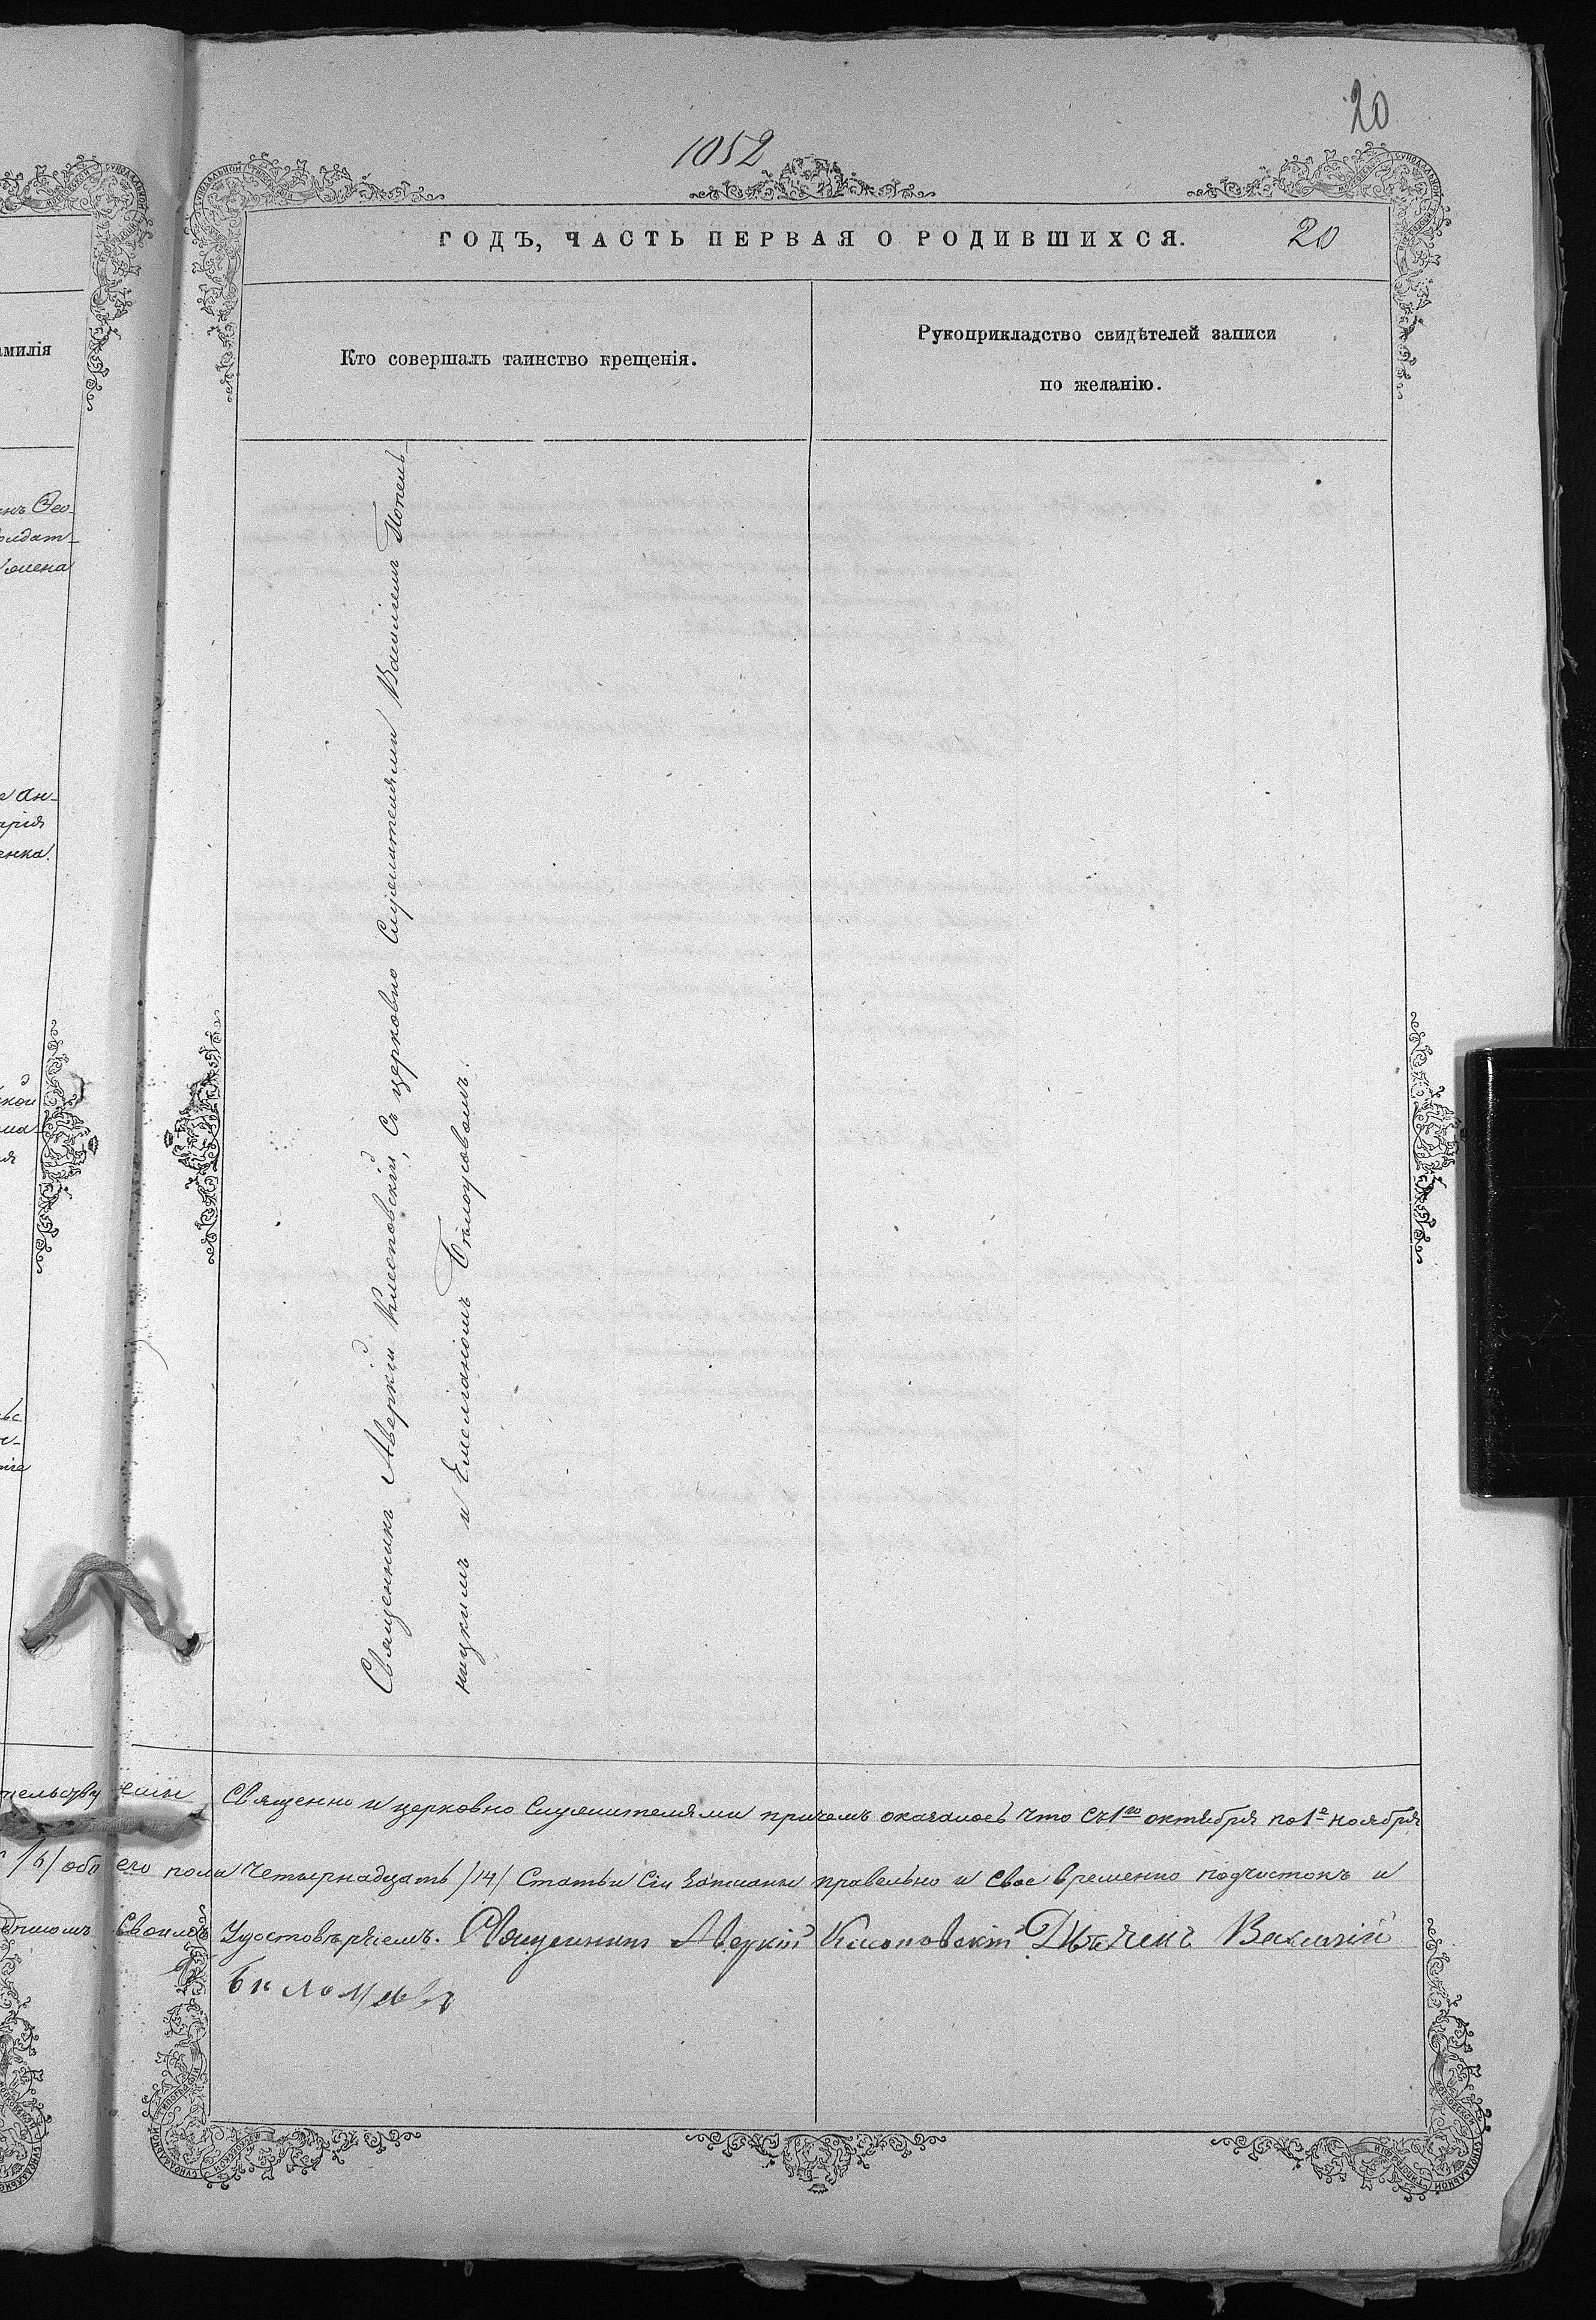 20
1052
ГОДЪ, ЧАСТЬ ПЕРВАЯ О РОДИВШИХСЯ.
20
амилія
Кто совершалъ таинство крещенія.
Рукоприкладство свидѣтелей записи
по желанію.
Священникъ Аверкій Клеоповскій, Съ церковно Служителями Василіемъ Попель-
ницкимъ и Емеліаномъ Бѣлоусовомъ.
Священно и церковно Служителями причемъ оказалось что Съ 1го октября по 1е ноября
/6/ обоего пола Четырнадцать /14/ Статьи Сіи правельно и Свое временно подчистокъ и
Своимъ Удостовѣряемъ. Священникъ Аверкій Клеоповскій Дьячекъ Василій